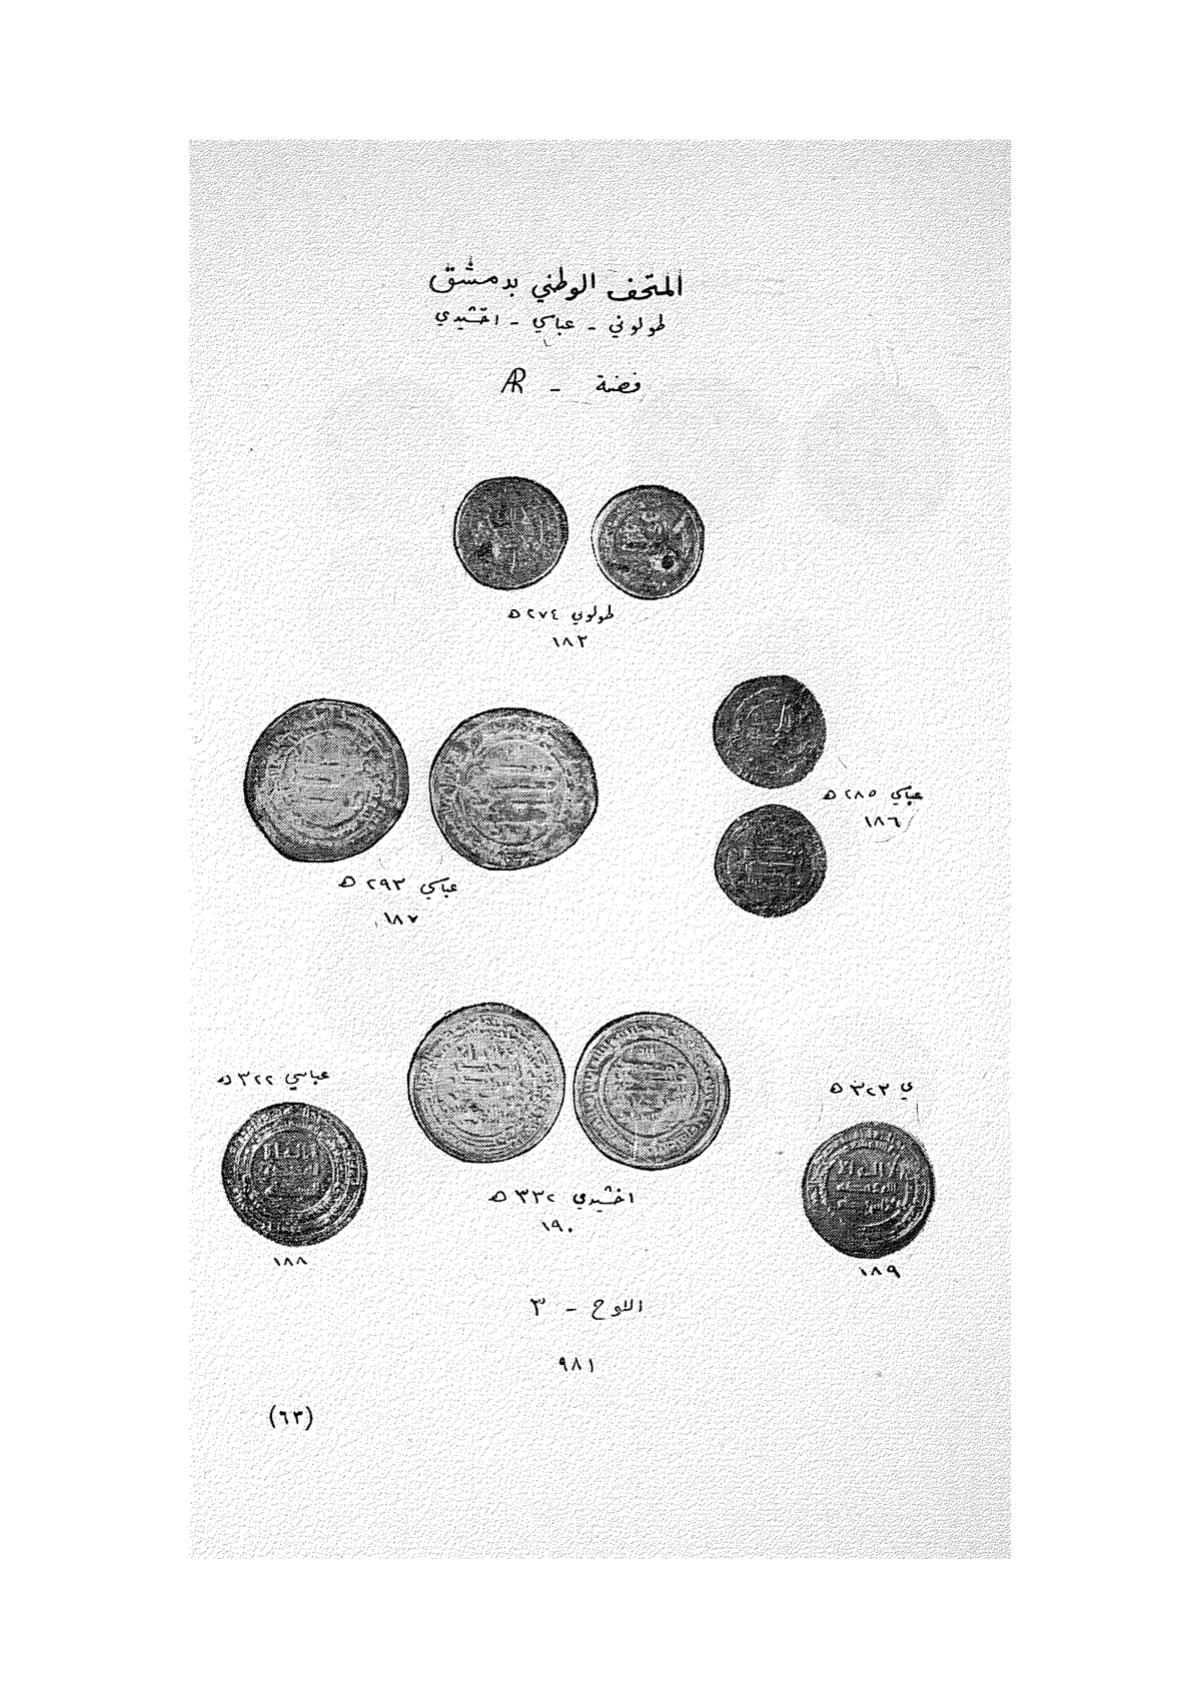 المتحف الوطني بدمشق
طولوني - عباسي - اخشيدي
فضة - AR
طولوني ٢٧٤ هـ
١٨٣
عباسي ٢٨٥ هـ
١٨٦
عباسي ٢٩٣ هـ
١٨٧
عباسي ٣٢٢ هـ
ي ٣٢٣ هـ
اخشيدي ٣٣٢ هـ
١٩٠
١٨٨
١٨٩
اللوح - ٣
٩٨١
(٦٣)